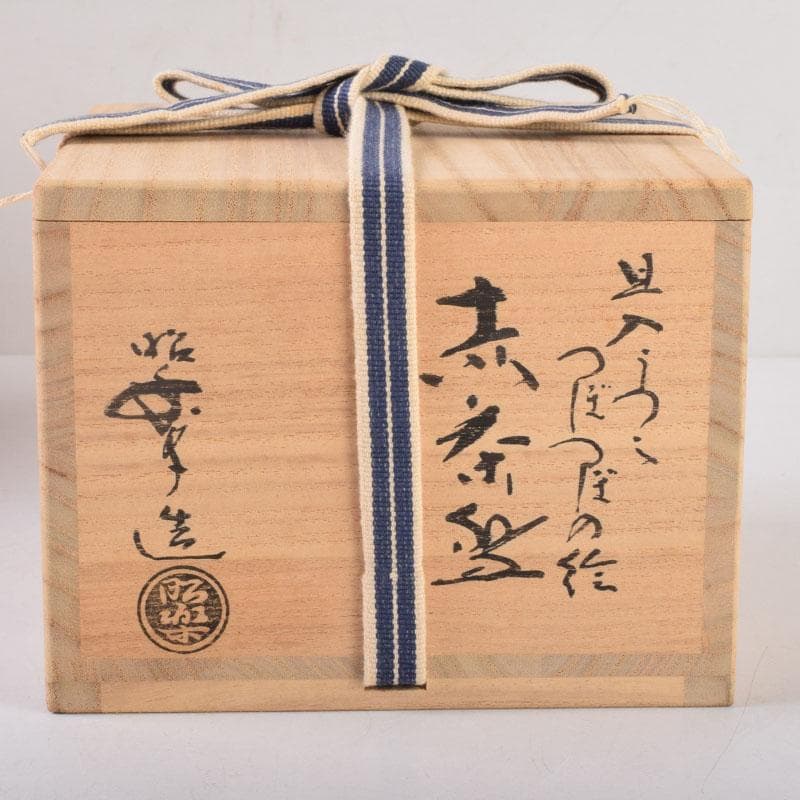 旦入うつし
つぼつぼの絵
赤茶盌
昭楽造
昭楽